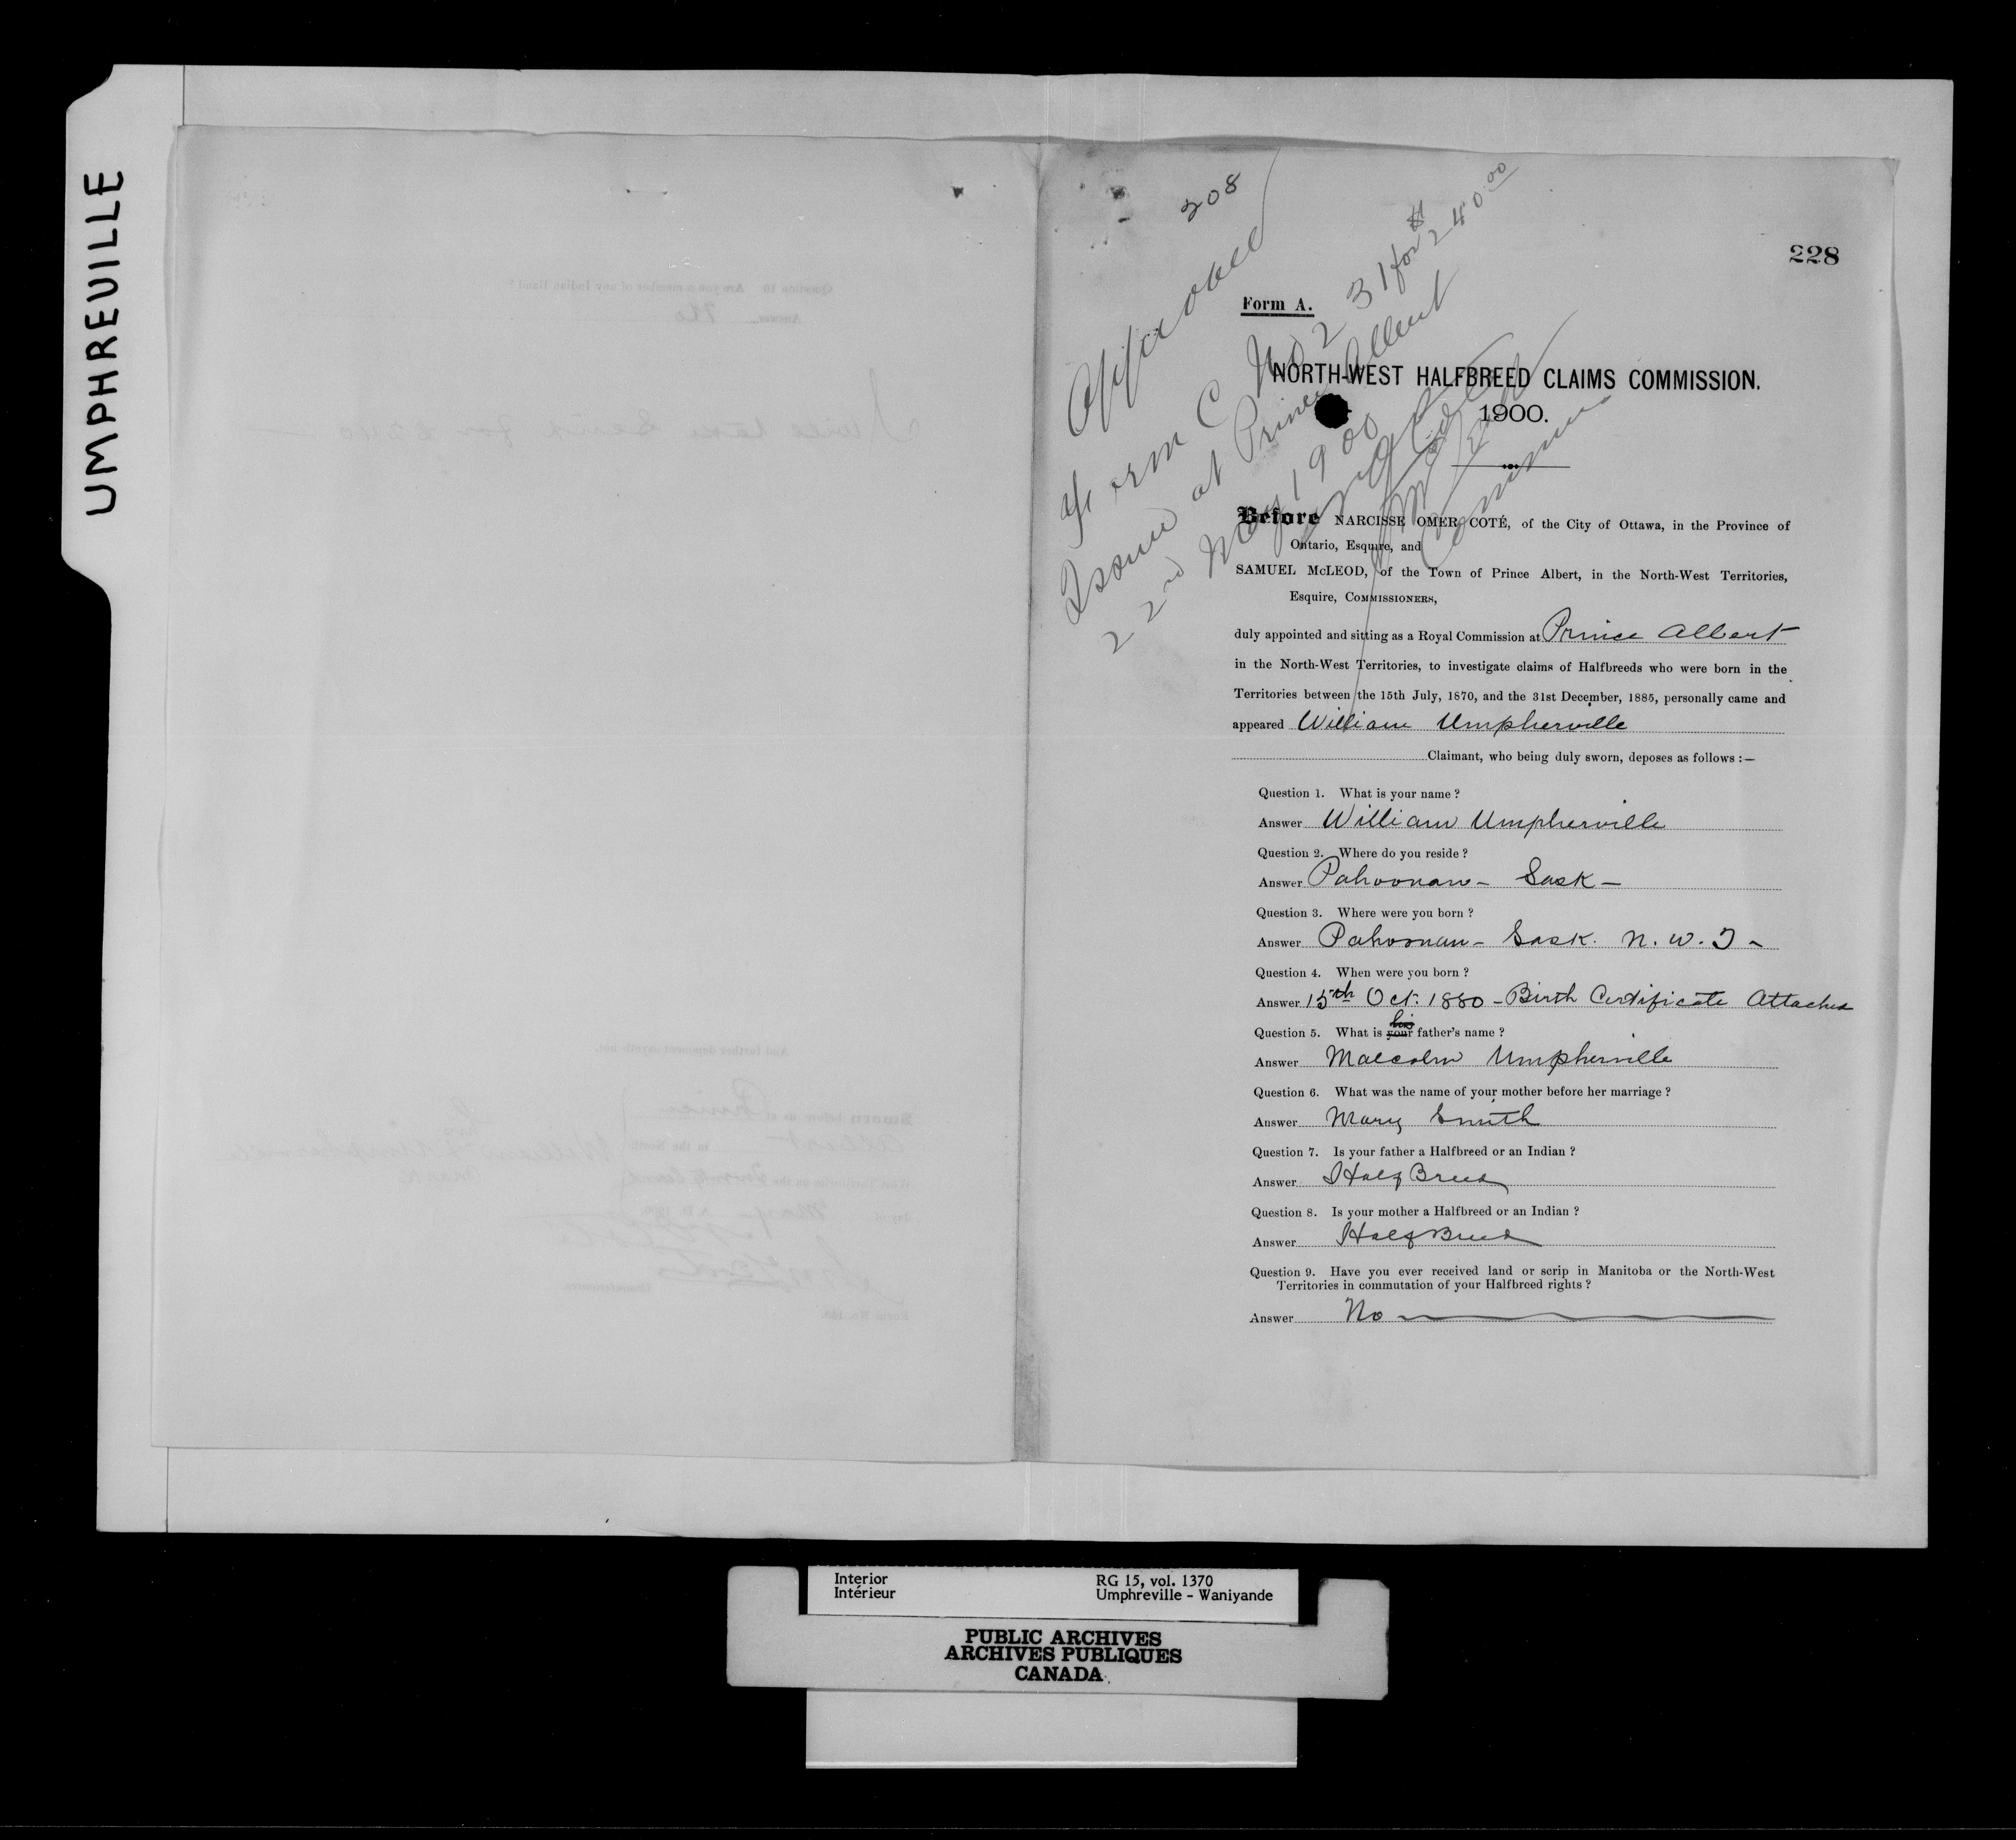 UMPHREVILLE
208
228
Approved
Form C No 231 for $240.00
Issued at Prince Albert
22nd May 1900
Form A.
NORTH-WEST HALFBREED CLAIMS COMMISSION.
1900.
Before NARCISSE OMER COTÉ, of the City of Ottawa, in the Province of
Ontario, Esquire, and
SAMUEL McLEOD, of the Town of Prince Albert, in the North-West Territories,
Esquire, COMMISSIONERS,
duly appointed and sitting as a Royal Commission at Prince Albert
in the North-West Territories, to investigate claims of Halfbreeds who were born in the
Territories between the 15th July, 1870, and the 31st December, 1885, personally came and
appeared William Umpherville
Claimant, who being duly sworn, deposes as follows :—
Question 1. What is your name ?
Answer William Umpherville
Question 2. Where do you reside ?
Answer Pahoonan - Sask -
Question 3. Where were you born ?
Answer Pahoonan - Sask. N. W. T -
Question 4. When were you born ?
Answer 15th Oct. 1880 - Birth Certificate Attached
Question 5. What is your his father's name ?
Answer Malcolm Umpherville
Question 6. What was the name of your mother before her marriage ?
Answer Mary Smith
Question 7. Is your father a Halfbreed or an Indian ?
Answer Half Breed
Question 8. Is your mother a Halfbreed or an Indian ?
Answer Half Breed
Question 9. Have you ever received land or scrip in Manitoba or the North-West
Territories in commutation of your Halfbreed rights ?
Answer No
Interior
Intérieur
RG 15, vol. 1370
Umphreville - Waniyande
PUBLIC ARCHIVES
ARCHIVES PUBLIQUES
CANADA